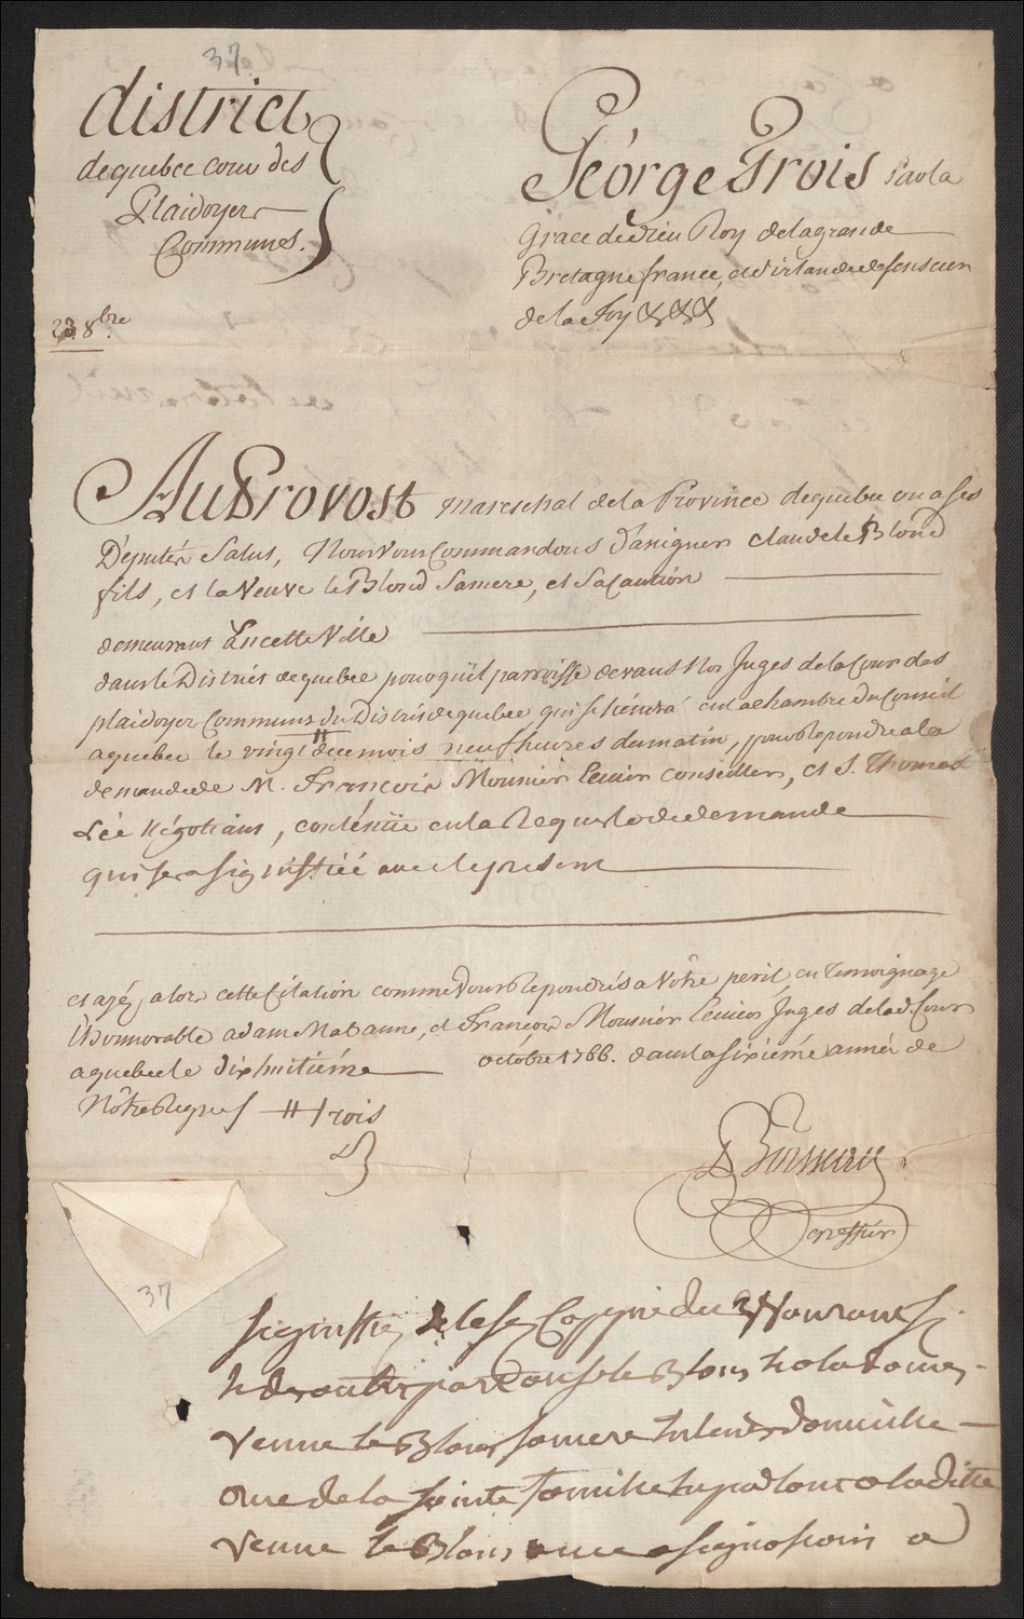 37
district
de quebec cour des
Plaidoyers
Communes.
23 8bre
George Trois Par la
Grace de dieu Roy de la grande
Bretagne france, et d'irlande defenseur
de la foy &&&
Au Provost mareschal de la Province de quebec ou a ses
Députés Salut, Nous Vous Commandons d'assigner Claude le Blond
fils, et la Veuve le Blond Sa mere, et Sa Caution
demeurant En cette Ville
dans le District de quebec pour qu'il paroisse devant Nos Juges de la Cour des
plaidoyers Communs du District de quebec qui se tiendra en la chambre du Conseil
a quebec le vingt de ce mois neuf heures du matin, pour Repondre a la
demande de M. François Mounier Ecuier Conseiller, et S. Thomas
Lée Négotians, contenüe en la Requeste de demande
qui sera signiffiée avec le present
et ayez alors cette Citation comme Vous Repondrés a Votre peril, en temoignage
l'honnorable adam Mabanne, et François Mounier Ecuier Juges de lad. Cour
a quebec le dix huitiéme octobre 1766. dans la sixiéme année de
Nôtre Regne / # trois
Boisseau
Greffier
37
signiffiez et lesé Coppie du
par le Blond
veuve le Blond sa mere En leur domicille
rue de la sainte famille En parlant a la ditte
veuve le Blond avec assignation a